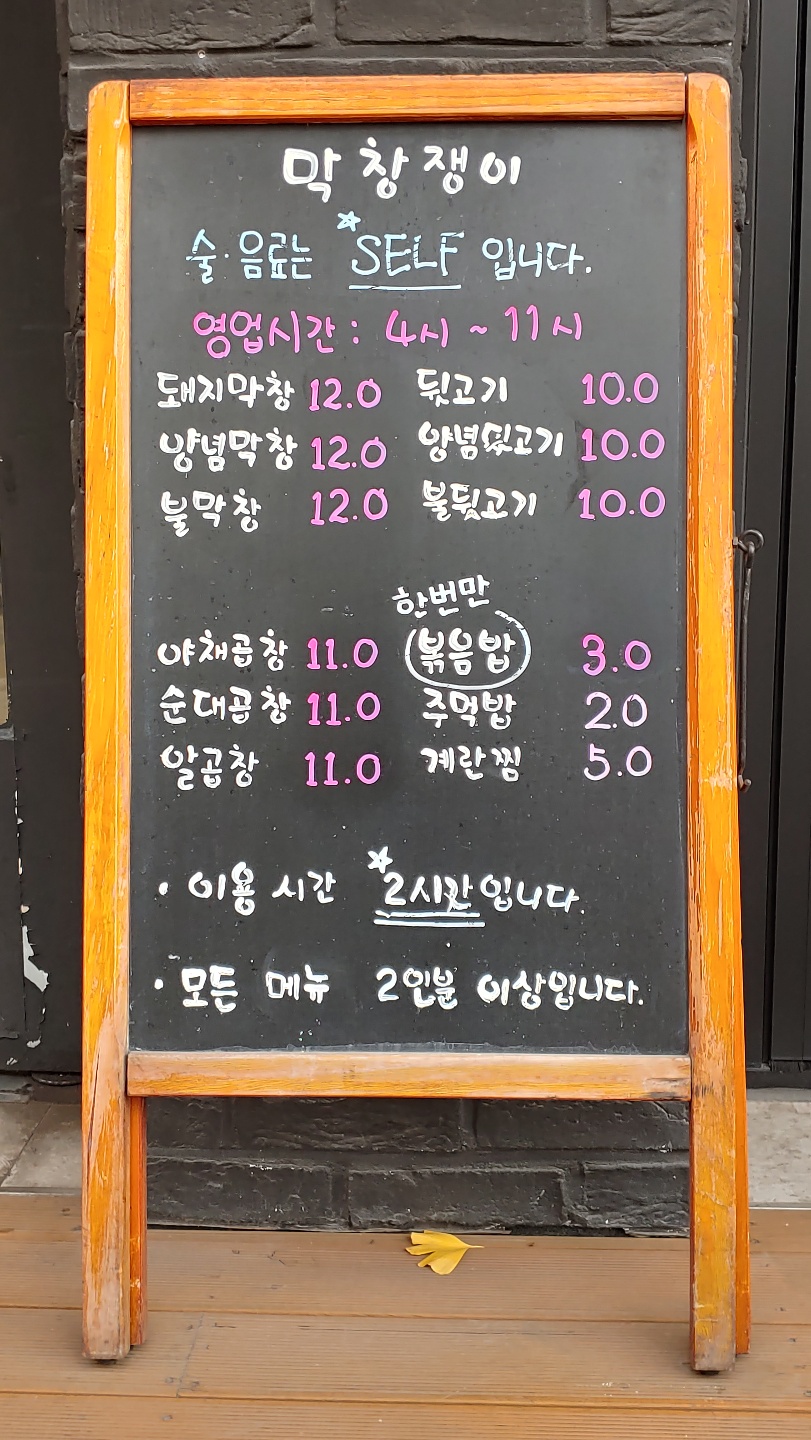 막창쟁이
술·음료는 SELF 입니다.
영업시간 : 4시 ~ 11시
돼지막창 12.0 뒷고기 10.0
양념막창 12.0 양념뒷고기 10.0
불막창 12.0 불뒷고기 10.0
한번만
야채곱창 11.0 볶음밥 3.0
순대곱창 11.0 주먹밥 2.0
알곱창 11.0 계란찜 5.0
· 이용 시간 2시간입니다.
· 모든 메뉴 2인분 이상입니다.